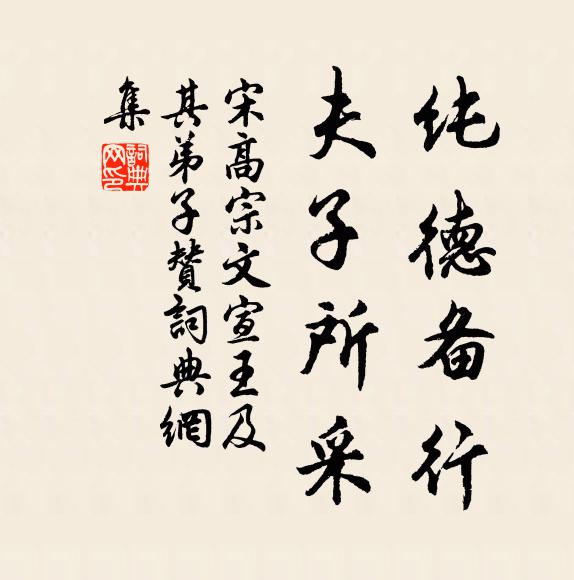 纯德备行
夫子所采
宋高宗文宣王及
其弟子贊詞典網
集
詞典网印